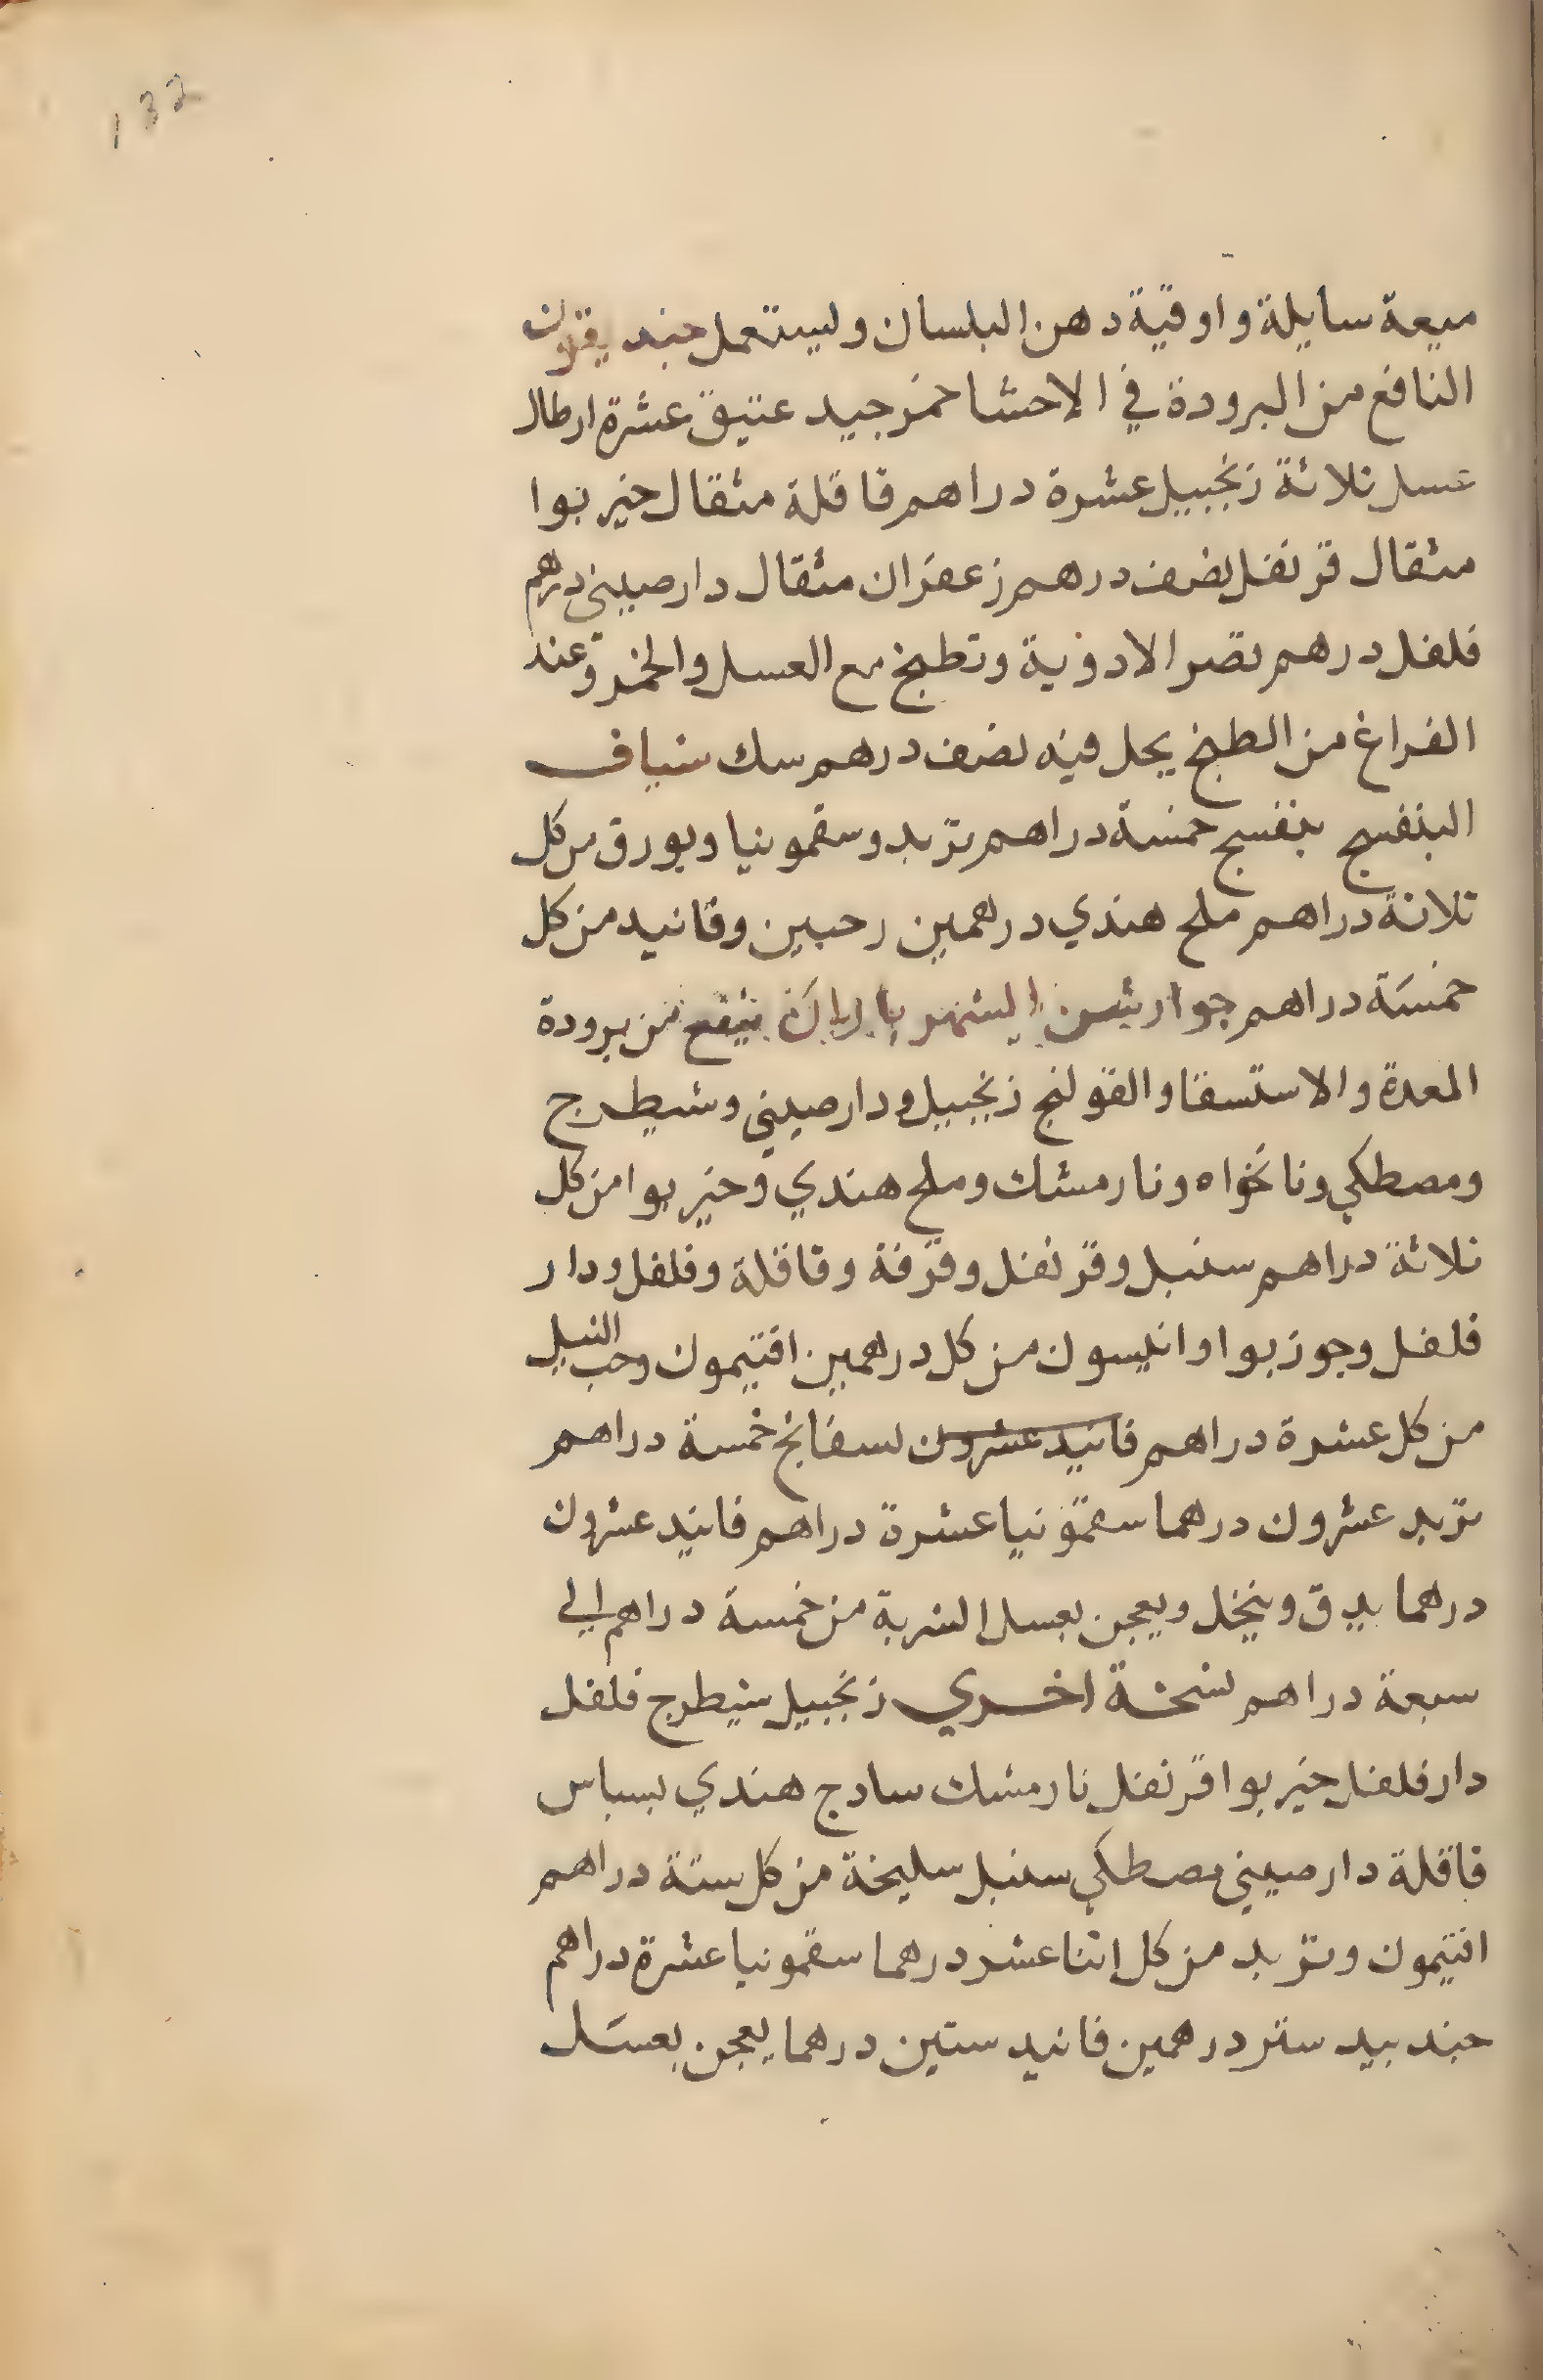 132
ميعة سايلة واوقية دهن البلسان وليستعمل جنديقون
النافع من البرودة في الاحشا خمر جيد عتيق عشرة ارطال
عسل ثلاثة زنجبيل عشرة دراهم قاقلة مثقال خير بوا
مثقال قرنفل نصف درهم زعفران مثقال دارصيني درهم
فلفل درهم تصر الادوية وتطبخ مع العسل والخمر وعند
الفراغ من الطبخ يحل فيه نصف درهم سك شياف
البنفسج بنفسج خمسة دراهم تربد وسقمونيا وبورق من كل
ثلاثة دراهم ملح هندي درهمين رحبين وفانيد من كل
خمسة دراهم جوارشن الشهرياران ينفع من برودة
المعدة والاستسقا والقولنج زنجبيل ودارصيني وشيطرج
ومصطكي ونانخواه ونارمشك وملح هندي وخير بوا من كل
ثلاثة دراهم سنبل وقرنفل وقرفة وقاقلة وفلفل ودار
فلفل وجوزبوا وانيسون من كل درهمين افتيمون وحب النيل
من كل عشرة دراهم فانيد عشرون بسفايج خمسة دراهم
تربد عشرون درهما سقمونيا عشرة دراهم فانيد عشرون
درهما يدق وينخل ويعجن بعسل الشربة من خمسة دراهم الي
سبعة دراهم نسخة اخري زنجبيل شيطرج فلفل
دارفلفل خير بوا قرنفل نارمشك سادج هندي بسباس
قاقلة دارصيني مصطكي سنبل سليخة من كل ستة دراهم
افتيمون وتربد من كل اثنا عشر درهما سقمونيا عشرة دراهم
جند بيد ستر درهمين فانيد ستين درهما يعجن بعسل